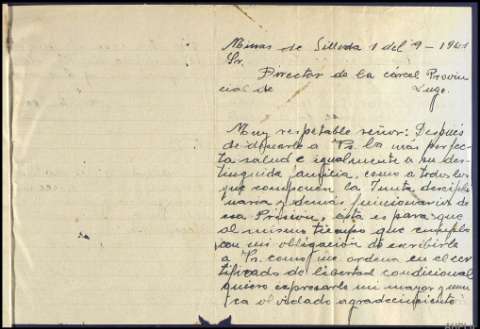 Minas de Silleda 1 del 9-1941
Sr.
Director de la cárcel Provin
cial de Lugo.
Muy respetable señor: Después
de desearle a Vs. la más perfec
ta salud e igualmente a su dis
tinguida familia, como a todos los
que componen la Junta discipli
naria y demás funcionarios de
esa Prisión, ésta es para que
al mismo tiempo que cumplo
con mi obligación de escribirle
a Vs. como me ordena en el cer
tificado de libertad condicional
quiero expresarle mi mayor y nun
ca olvidado agradecimiento: